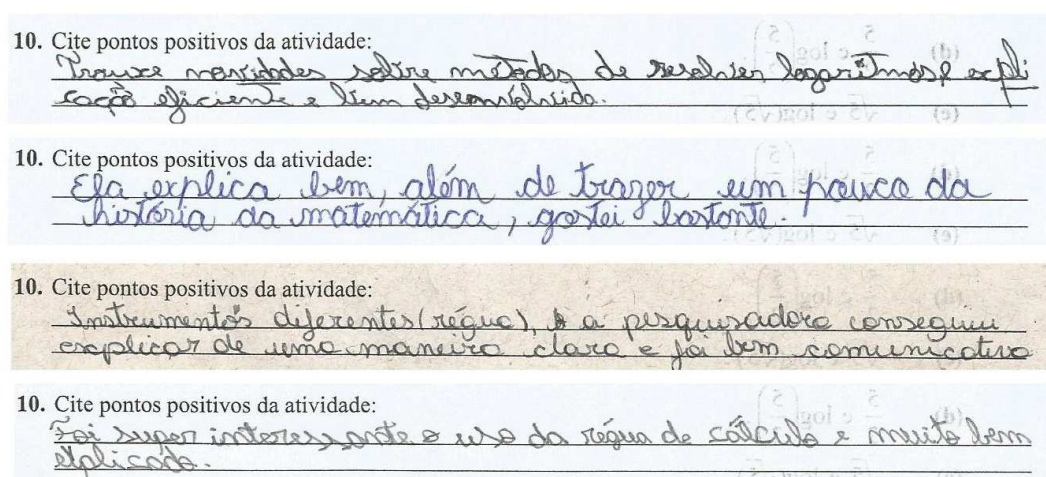 10. Cite pontos positivos da atividade:
Trouxe novidades sobre métodos de resolver logaritmos e expli
cação eficiente e bem desenvolvida.
10. Cite pontos positivos da atividade:
Ela explica bem, além de trazer um pouco da
história da matemática, gostei bastante.
10. Cite pontos positivos da atividade:
Instrumentos diferentes (régua), a pesquisadora conseguiu
explicar de uma maneira clara e foi bem comunicativa
10. Cite pontos positivos da atividade:
Foi super interessante o uso da régua de cálculo e muito bem
explicado.